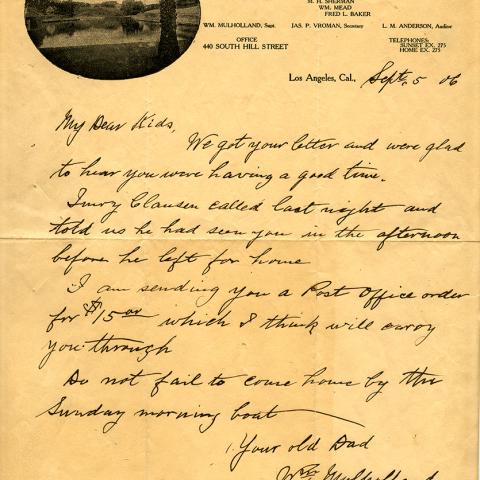 M. H. SHERMAN
WM. MEAD
FRED L. BAKER
WM. MULHOLLAND, Supt. JAS. P. VROMAN, Secretary L. M. ANDERSON, Auditor
OFFICE
440 SOUTH HILL STREET
TELEPHONES:
SUNSET EX. 275
HOME EX. 275
Los Angeles, Cal., Sept. 5 06
My Dear Kids,
We got your letter and were glad
to hear you were having a good time.
Clausen called last night and
told us he had seen you in the afternoon
before he left for home
I am sending you a Post Office order
for $15 00 which I think will carry
you through
Do not fail to come home by the
Sunday morning boat
Your old Dad
Wm Mulholland